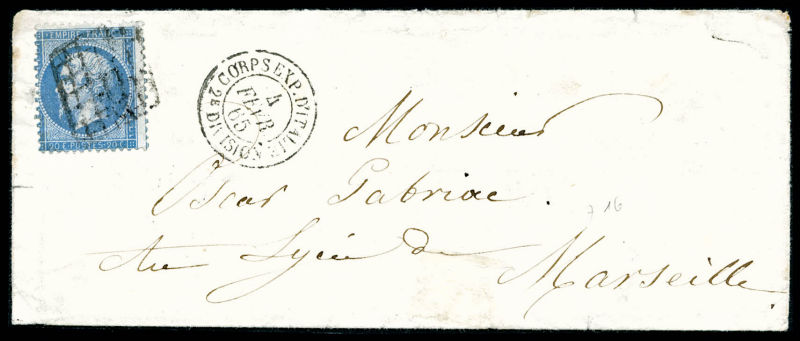 EMPIRE FRANC
20 C POSTES 20 C
CORPS EXP. D'ITALIE
4
FEVR
65
2E DIVISION
Monsieur
Oscar Gabriac.
Au Lycée de
Marseille